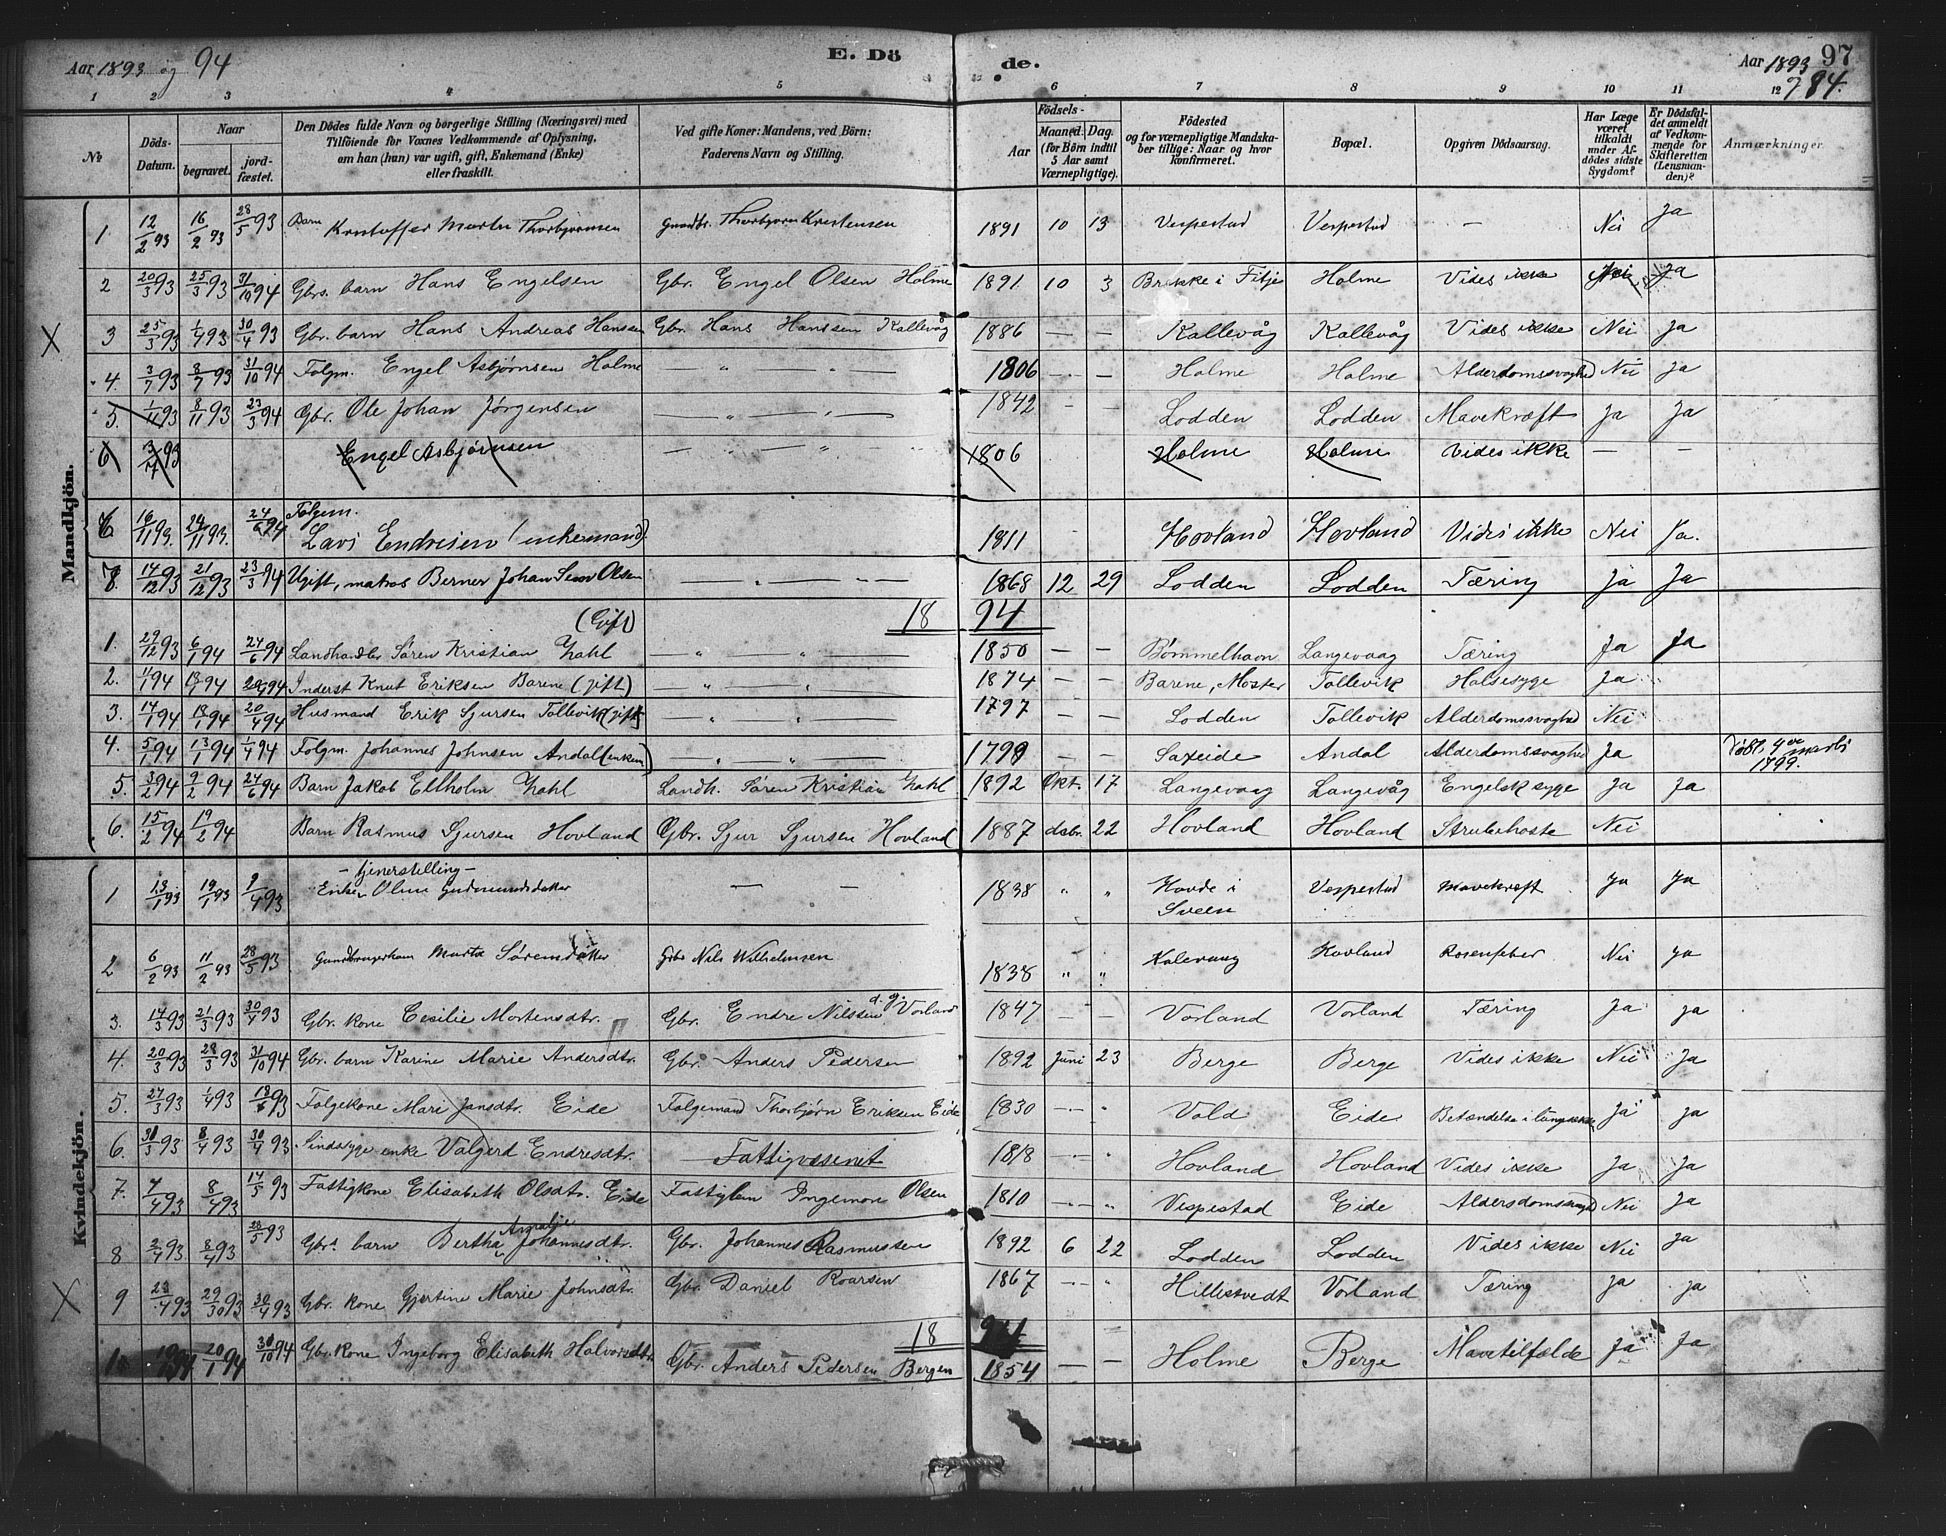 Aar 1893 og 94
E. Dö
de.
Aar 1893 97
og 94.
1 2 3 4 5 6 7 8 9 10 11 12
No
Döds-Datum.
Naar
begravet.
jord-fæstet.
Den Dödes fulde Navn og borgerlige Stilling (Næringsvei) med
Tilföiende for Voxnes Vedkommende af Oplysning,
om han (hun) var ugift, gift, Enkemand (Enke)
eller fraskilt.
Ved gifte Koner: Mandens, ved Börn:
Faderens Navn og Stilling.
Födsels-
Aar
Maaned. Dag.
(for Börn indtil
5 Aar samt
Værnepligtige).
Födested
og for værnepligtige Mandska-
ber tillige: Naar og hvor
konfirmeret.
Bopæl.
Opgiven Dödsaarsag.
Har Læge
været
tilkaldt
under Af-
dödes sidste
Sygdom?
Er Dödsfal-
det anmeldt
af Vedkom-
mende for
Skifteretten
(Lensman-
den)?
Anmærkninger.
Mandkjön.
1. 12/2 93 16/2 93 28/5 93 Barn Kristoffer Martin Thorbjørnsen Gaardbr. Thorbjørn Kristensen 1891 10 13 Vespestad Vespestad — Nei Ja
2 20/3 93 25/3 93 31/10 94 Gbrs. barn Hans Engelsen Gbr. Engel Olsen Holme 1891 10 3 Brekke i Fitje Holme Vides ikke Nei Ja
X 3 25/3 93 1/4 93 30/4 93 Gbr. barn Hans Andreas Hanssen Gbr. Hans Hanssen Kallevåg 1886 — — Kallevåg Kallevåg Vides ikke Nei Ja
4. 3/7 93 8/7 93 31/10 94 Folgm. Engel Asbjørnsen Holme — " — " — 1806 — — Holme Holme Alderdomssvaghed Nei Ja
5. 1/11 93 8/11 93 23/3 94 Gbr. Ole Johan Jørgensen — " — " — 1842 — — Lodden Lodden Mavekræft Ja Ja
6 Engel Asbjørnsen — " — " 1806 Holme Holme Vides ikke — —
6 16/11 93. 24/11 93. 24/6 94 Folgem. Lars Endresen (enkemand) 1811 Hovland Hovland Vides ikke Nei Ja.
7 8. 14/12 93 21/12 93 23/3 94 Ugift, matros Berner Johan Olsen — " — — 1868 12 29 Lodden Lodden Tæring Ja Ja
18 94
1. 29/12 93 6/1 94 24/6 94 Landhandler Søren Kristian Zahl (Gift) — " — " — 1850 — — Bømmelhavn Langevaag Tæring Ja Ja
2. 1/1 94 13/1 94 20/4 94 Inderst Knut Eriksen Barene (gift) — " — " — 1874 — — Barene, Moster Tollevik Halsesyge Ja
3. 14/1 94 19/1 94 20/4 94 Husmand Erik Sjursen Tollevik (gift) — " — " — 1797 — — Lodden Tollevik Alderdomssvaghed Nei
4. 5/1 94 13/1 94 1/4 94 Folgm. Johannes Johnsen Andal (enkem) — " — " — 1799 — — Saxeide Andal Alderdomssvaghed Ja Døbt 4de marts 1799.
5. 3/2 94 9/2 94 24/6 94 Barn Jakob Ellholm Zahl Landh. Søren Kristian Zahl 1892 Okt. 17 Langevaag Langevåg Engelsk syge Ja Ja
6. 15/2 94 19/2 94 Barn Rasmus Sjursen Hovland Gbr. Sjur Sjursen Hovland 1887 dsbr. 22 Hovland Hovland Strubehoste Nei
Kvindekjön.
1 13/1 93 19/1 93 9/4 93 — tjenerstilling — Enke Oline Gudmundsdatter — — 1838 " " Hovde i Sveen Vespestad Mavekræft Ja Ja
2 6/2 93 11/2 93 28/5 93 Marta Sørensdatter Gbr. Nils Wilhelmsen 1838 " " Kalevaag Hovland Rosenfeber Nei Ja
3. 14/3 93 21/3 93 30/4 93 Gbr. kone Cecilie Mortensdtr. Gbr. Endre Nilssen d. y. Vorland 1847 — — Vorland Vorland Tæring Ja Ja
4. 20/3 93 28/3 93 31/10 94 Gbr. barn Karine Marie Andersdtr. Gbr. Anders Pedersen 1892 Juni 23 Berge Berge Vides ikke Nei Ja
5. 27/3 93 1/4 93 18/6 93 Folgekone Mari Jansdtr. Eide Folgemand Thorbjørn Eriksen Eide 1830 — " Vold Eide Betændelse i Ja Ja
6. 31/3 93 8/4 93 30/4 93 Sindssyge enke Valgerd Endresdtr. Fattigvæsenet 1818 — " Hovland Hovland Vides ikke Ja Ja
7. 7/4 93 8/4 93 14/5 93 Fattigkone Elisabeth Olsdtr. Eide Fattiglem Ingemon Olsen 1810 — " Vespestad Eide Aldersdomssvaghed Nei Ja
8 2/4 93 8/4 93 28/5 93 Gbrs barn Bertha Amalie Johannesdtr. Gbr. Johannes Rasmussen 1892 6 22 Lodden Lodden Vides ikke Nei Ja
X 9 23/4 93 29/30 93 30/4 93 Gbr. kone Gjertine Marie Johnsdtr. Gbr. Daniel Roarsen 1867 — " Hillestvedt Vorland Tæring Ja Ja
18 94
1 20/1 94 31/10 94 Gbr. kone Ingeborg Elisabeth Halvorsdtr. Gbr. Anders Pedersen Bergen 1854 — — Holme Berge Mavetilfælde Ja Ja